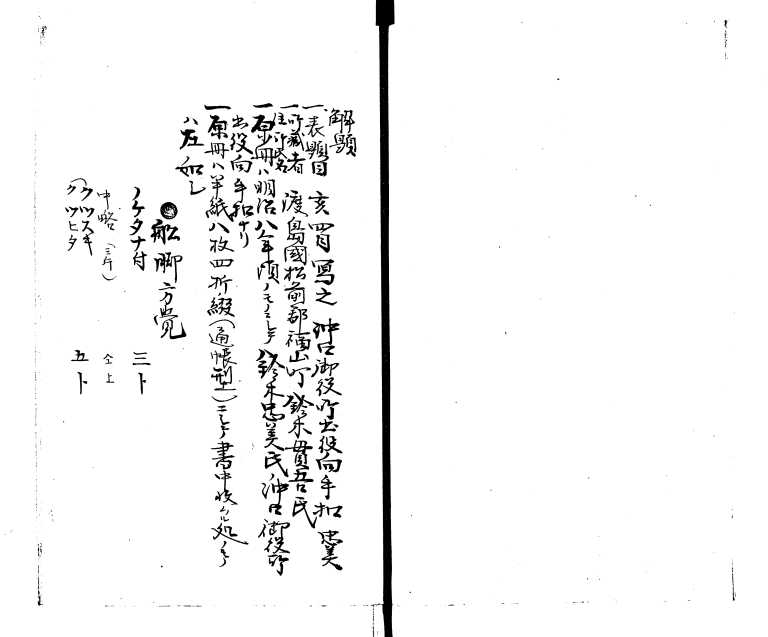 解題
一、表題目 亥四月写之 沖口御役所出役向手扣 忠美
一所蔵者
住所氏名 渡島國松前郡福山町 鈴木貫吾氏
一原冊ハ明治八、九年頃ノモノニシテ鈴木忠美氏沖口御役所
出役向手扣ナリ
一原冊ハ半紙八枚四折綴(通帳型)ニシテ書中収ムル処ノモノ
ハ左ノ如シ
船脚方覚
ノケタナ付 三卜
中略(三行) 仝上
(クツスキ
クツヒタ 五卜